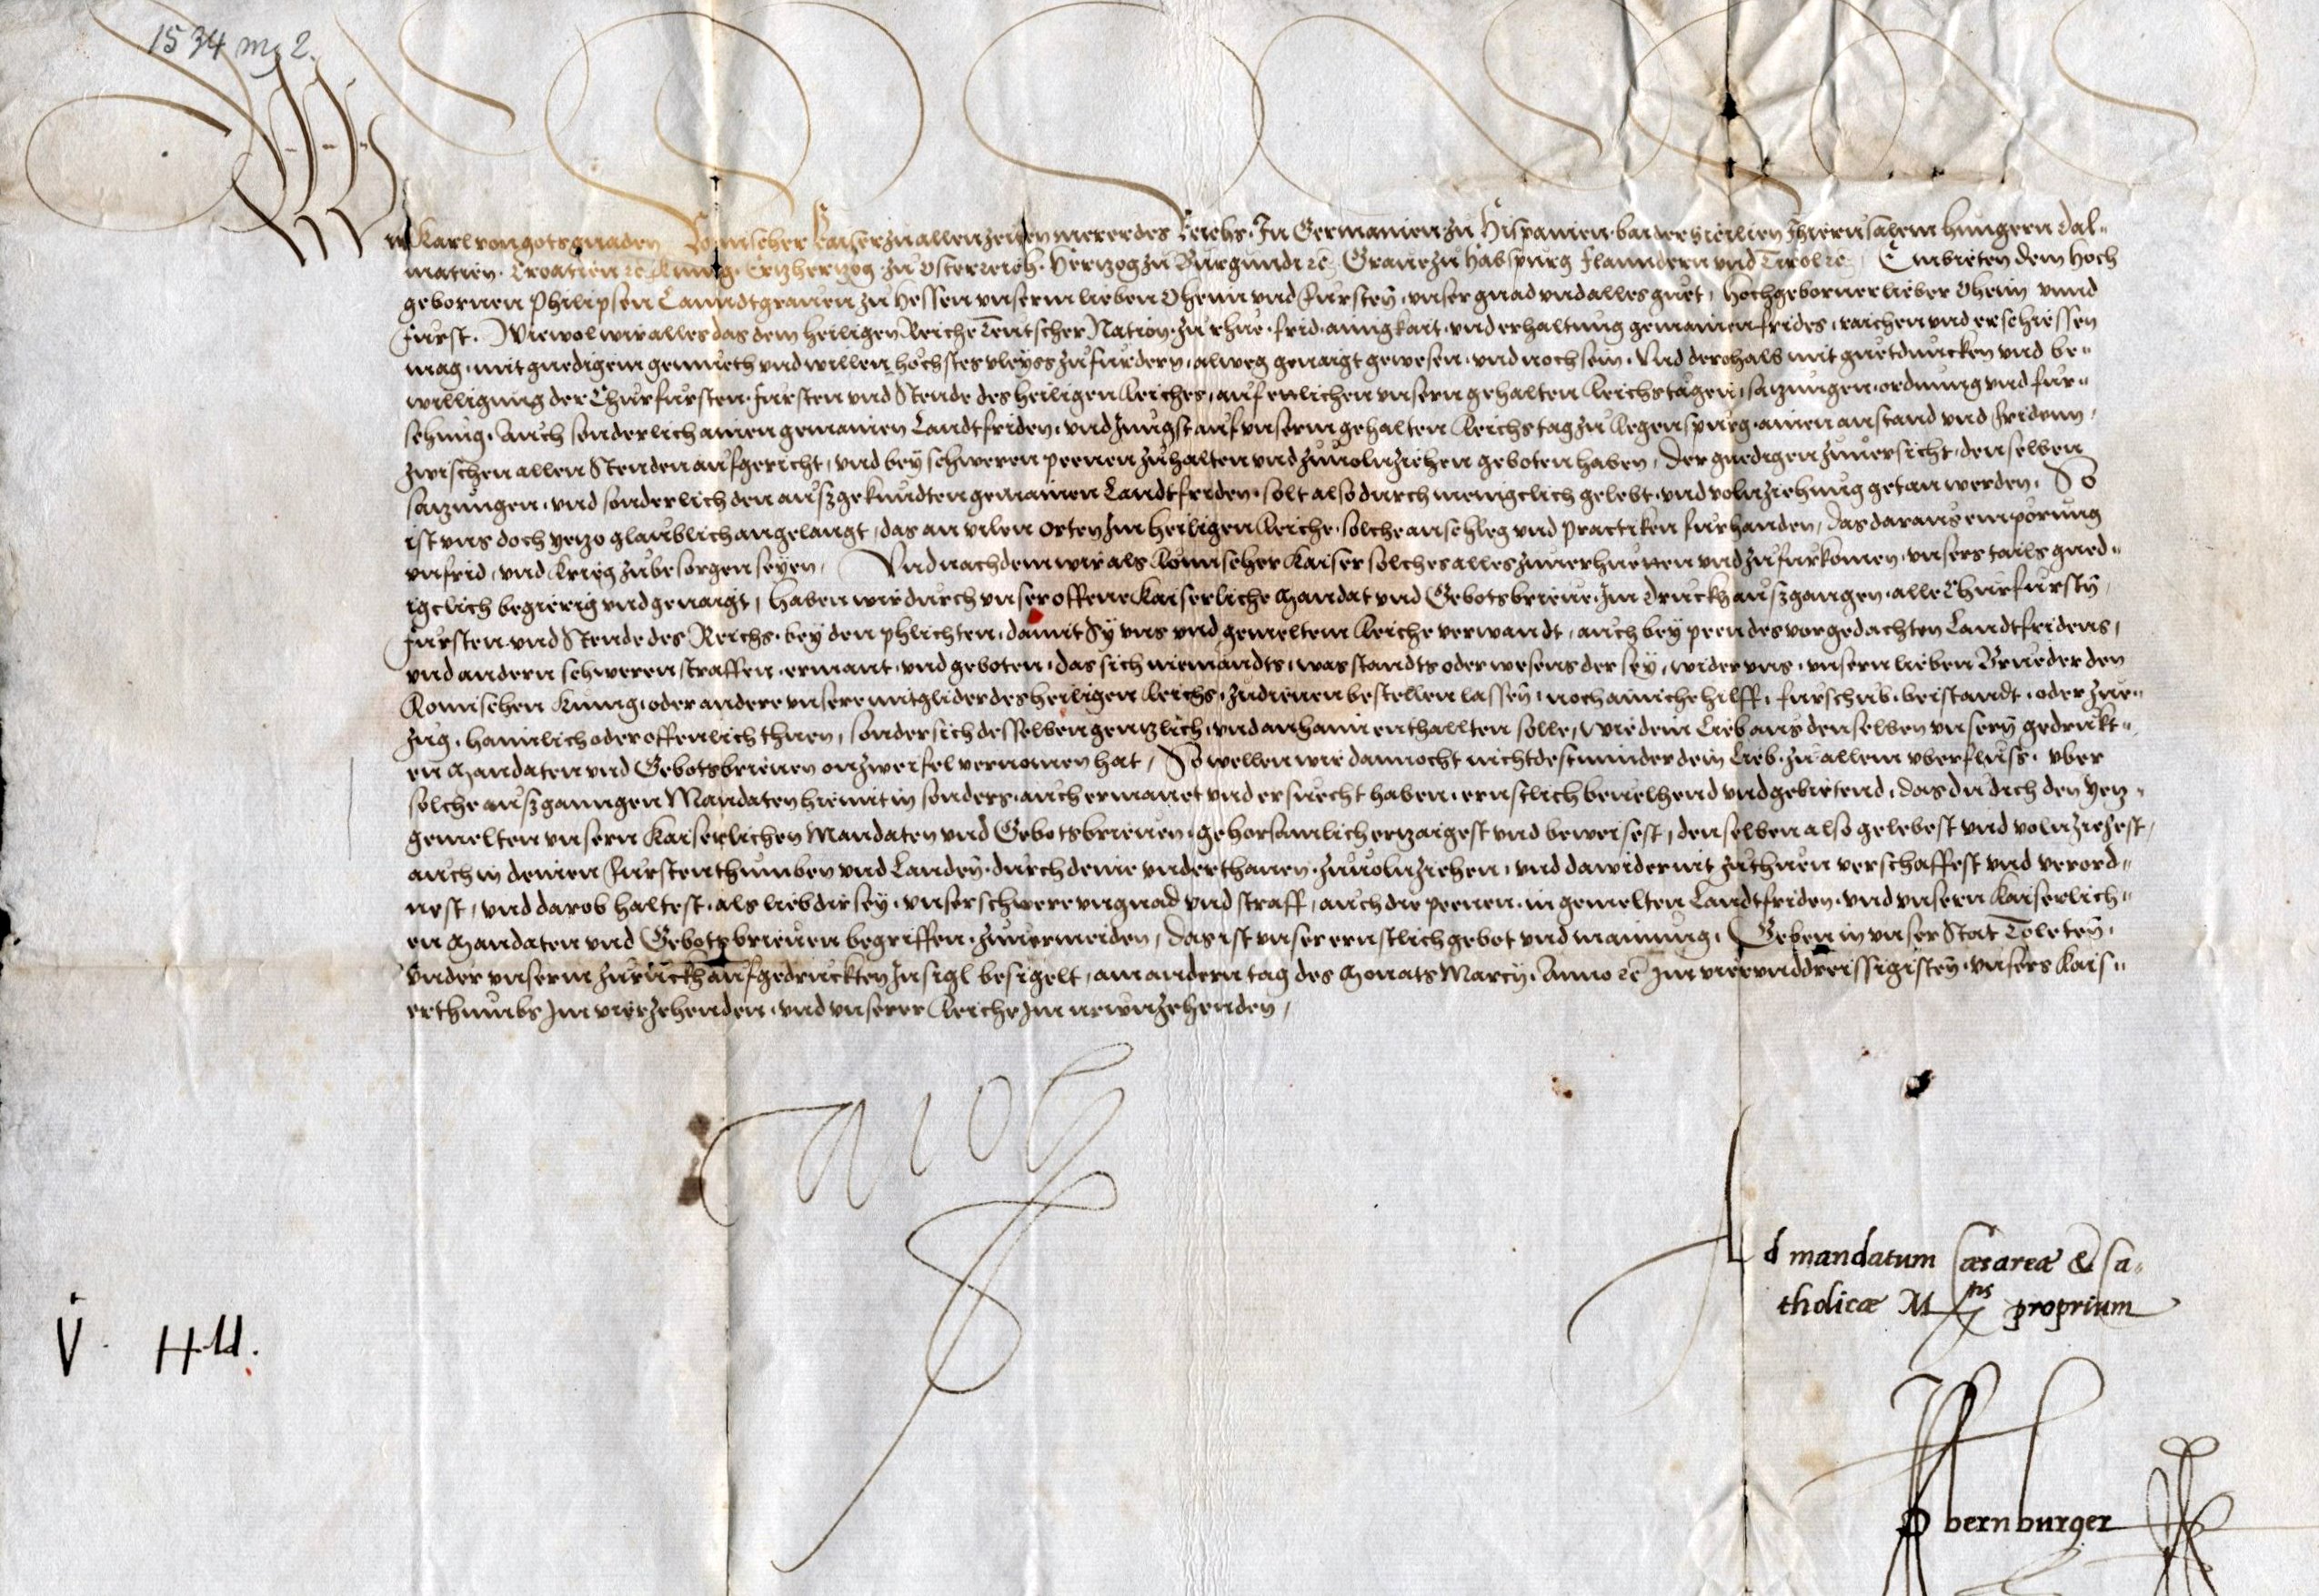 1534 mz 2.
Wir Karl von gots gnaden Romischer Kaiser zu allen zeiten merer des Reichs. In Germanien zu Hispanien. baider Sicilien Jherusalem Hungern Dal-
matien. Croatien rc̃ Kunig. Ertzhertzog zu Osterreich. Hertzog zu Burgundi rc̃ Graue zu Habspurg Flanndern vnd Tirol rc̃ Embieten dem hoch
gebornen Philipsen Lanndtgrauen zu Hessen vnserm lieben Oheim vnd fursten, vnser gnad vnd alles guet, Hochgeborner lieber Oheim vnnd
Furst. Wiewol wir alles das dem heiligen Reiche Teutscher Nation. zu rhue. frid. ainigkait. vnd erhaltung gemainen frides, raichen vnd erschiessen
mag, mit gnedigem gemueth vnd willen, höchstes vleyss zu furdern, alweg genaigt gewesen, vnd noch sein. Vnd derohalb mit guetduncken vnd be-
willigung der Churfursten. fursten vnd Stende des heiligen Reiches, auf etlichen vnsern gehalten Reichstagen, satzungen. ordnung vnd fur-
sehung. Auch sonderlich ainen gemainen Landtfriden, vnd Jungst auf vnserm gehalten Reichstag zu Regenspurg. ainen anstand vnd fridenn,
zwischen allen Stenden aufgericht, vnd bey schweren peenen zu halten vnd zuuolnziehen geboten haben, Der gnedigen zuuersicht, denselben
satzungen, vnd sonderlich den außgekundten gemainen Landtfriden, solt also durch menigclich gelebt. vnd volnziehung getan werden. So
ist vns doch yetzo glaublich angelangt, das an vilen orten Jm heiligen Reiche. solche anschleg vnd practiken furhanden, das daraus emporung
vnfrid, vnd krieg zubesorgen seyen. Vnd nachdem wir als Romischer Kaiser solches alles zuuerhuetten vnd zufurkomen, vnsers tails gned-
igclich begierig vnd genaigt, haben wir durch vnser offene Kaiserliche Mandat vnd Gebotsbrieue. Jm Druckh außgangen. alle Churfurstñ,
Fursten. vnd Stende des Reichs. bey den phlichten, damit Sy vns vnd gemeltem Reiche verwandt, auch bey peen des vorgedachten Landtfridens,
vnd andern schweren straffen. ermant. vnd geboten, das sich niemandts, was standts oder wesens der sey, wider vns, vnsern lieben Brueder den
Romischen Kunig, oder andere vnsere mitglider des heiligen Reichs. zudienen bestellen lassen, noch ainiche hilff, furschub. beistandt, oder zue-
zug, haimlich oder offenlich thuen, sonder sich desselben gentzlich, vnd anhaim enthallten solle, wie dein Lieb aus denselben vnsern gedruckt-
en Mandaten vnd Gebotsbrieuen onzweifel vernomen hat, So wellen wir dannocht nichtdestminder dein Lieb. zu allem vberfluss. vber
solche außganngen Mandaten hiemit in sonders. auch ermanet vnd ersuecht haben. ernstlich beuelhend vnd gebietend, das du dich den yetz-
gemelten vnsern Kaiserlichen Mandaten vnd Gebotsbrieuen, gehorsamlich ertzaigest vnd beweisest, denselben also gelebest vnd volnziehest,
auch in deinen Furstenthumben vnd Landen. durch deine vnderthanen. zuuolnziehen, vnd dawider nit zuthuen verschaffest vnd verord-
nest, vnd darob haltest. als lieb dir sey. vnser schwere vngnad vnd straff, auch die peenen. in gemelten Landtfriden. vnd vnsern Kaiserlich-
en Mandaten vnd Gebotsbrieuen begriffen. zuuermeiden, das ist vnser ernstlich gebot vnd mainung. Geben in vnser Stat Toleten,
vnder vnserm zuruckh aufgedruckten Jnsigl besigelt, am andern tag des Monats Marcy. Anno rc̃ Jm vierunddreissigisten. vnsers Kais-
erthumbs Jm vierzehenden. vnd vnserer Reiche Jm newnzehenden,
Carol
Ad mandatum Cæsareæ & Ca-
tholicæ Mtis proprium
V. Hld.
Obernburger